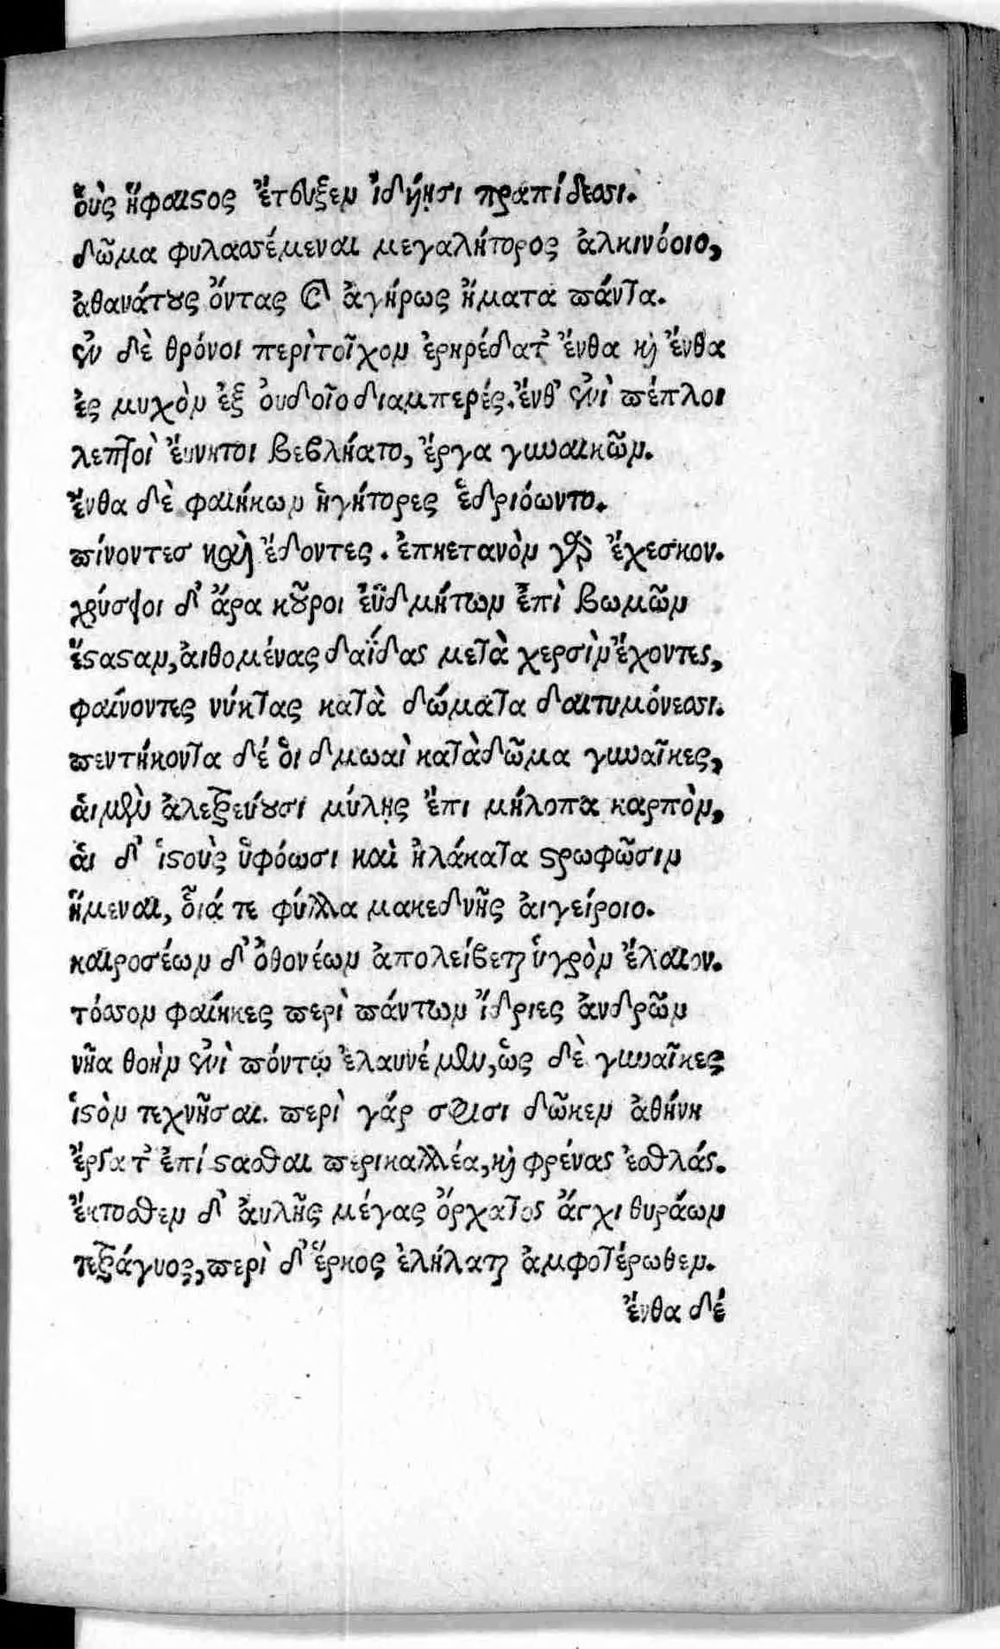 οὓς ἥφαιστος ἔτευξεν ἰδυίῃσι πραπίδεσσι.
δῶμα φυλασσέμεναι μεγαλήτορος ἀλκινόοιο,
ἀθανάτους ὄντας καὶ ἀγήρως ἤματα πάντα.
ἐν δὲ θρόνοι περὶ τοῖχον ἐρηρέδατ' ἔνθα καὶ ἔνθα
ἐς μυχὸν ἐξ οὐδοῖο διαμπερές. ἔνθ' ἐνὶ πέπλοι
λεπτοὶ ἐύνητοι βεβλήατο, ἔργα γυναικῶν.
ἔνθα δὲ φαιήκων ἡγήτορες ἑδριόωντο.
πίνοντες καὶ ἔδοντες. ἐπηετανὸν γὰρ ἔχεσκον.
χρύσειοι δ' ἄρα κοῦροι ἐϋδμήτων ἐπὶ βωμῶν
ἕστασαν, αἰθομένας δαΐδας μετὰ χερσὶν ἔχοντες,
φαίνοντες νύκτας κατὰ δώματα δαιτυμόνεσσι.
πεντήκοντα δέ οἱ δμωαὶ κατὰ δῶμα γυναῖκες,
αἱ μὲν ἀλετρεύουσι μύλῃς ἔπι μήλοπα καρπὸν,
αἱ δ' ἱστοὺς ὑφόωσι καὶ ἠλάκατα στρωφῶσιν
ἥμεναι, οἷά τε φύλλα μακεδνῆς αἰγείροιο.
καιροσέων δ' ὀθονέων ἀπολείβεται ὑγρὸν ἔλαιον.
τόσσον φαίηκες περὶ πάντων ἴδριες ἀνδρῶν
νῆα θοὴν ἐνὶ πόντῳ ἐλαυνέμεν, ὣς δὲ γυναῖκες
ἱστὸν τεχνῆσαι. περὶ γάρ σφισι δῶκεν ἀθήνη
ἔργατ' ἐπίστασθαι περικαλλέα, καὶ φρένας ἐσθλάς.
ἔκτοσθεν δ' αὐλῆς μέγας ὄρχατος ἄγχι θυράων
τετράγυος, περὶ δ' ἕρκος ἐλήλαται ἀμφοτέρωθεν.
ἔνθα δέ